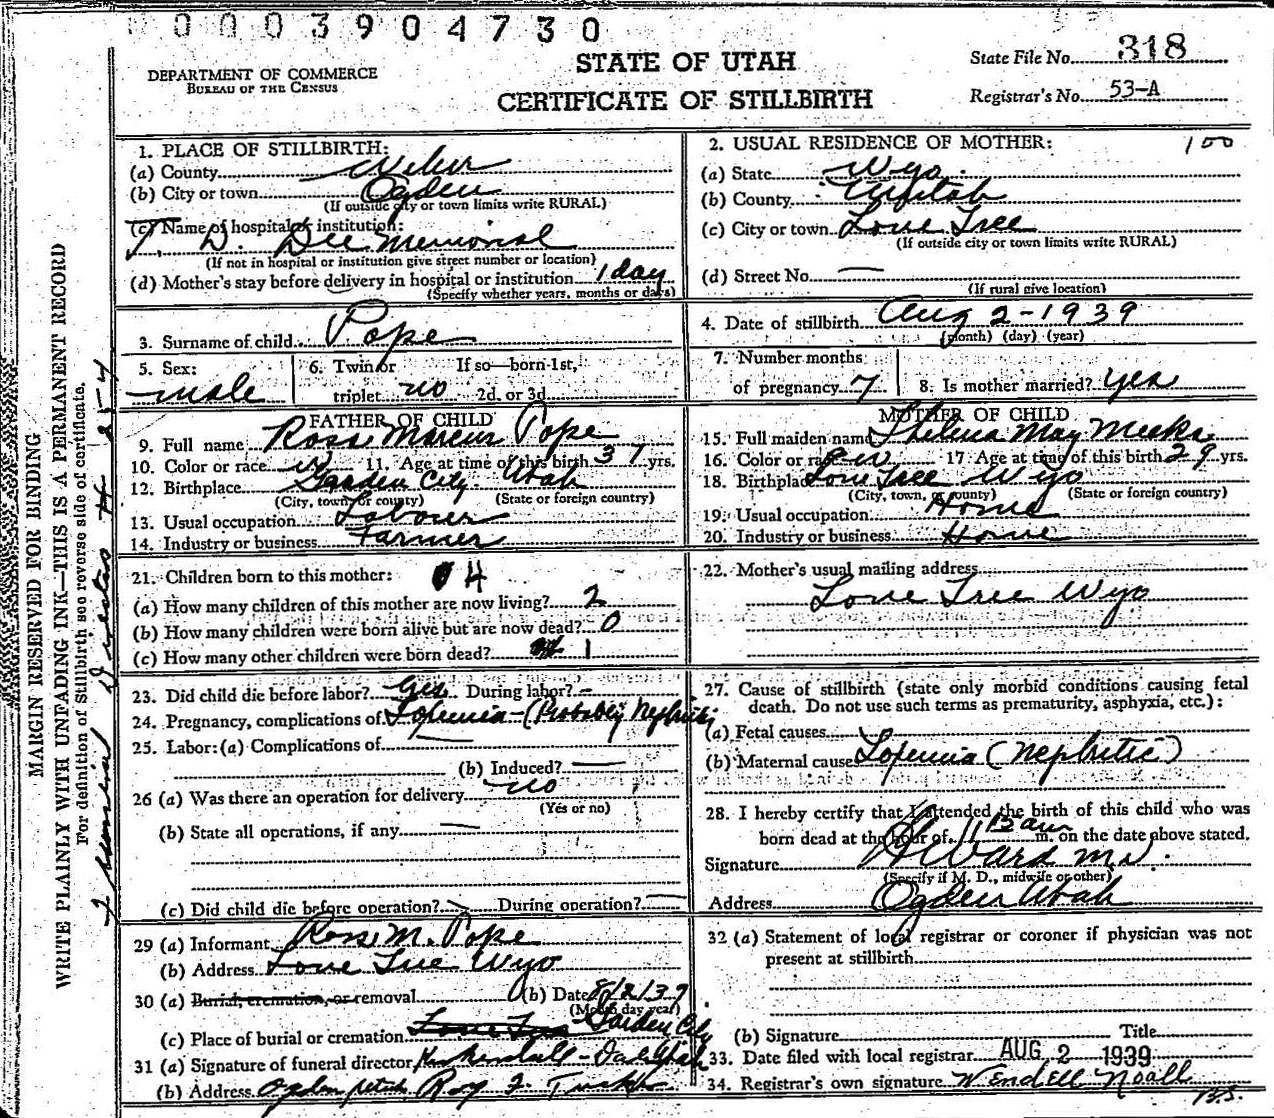 0003904730
STATE OF UTAH
CERTIFICATE OF STILLBIRTH
DEPARTMENT OF COMMERCE
BUREAU OF THE CENSUS
State File No. 318
Registrar's No. 53-A
MARGIN RESERVED FOR BINDING
WRITE PLAINLY WITH UNFADING INK—THIS IS A PERMANENT RECORD
For definition of Stillbirth see reverse side of certificate.
1. PLACE OF STILLBIRTH:
(a) County Weber
(b) City or town Ogden
(If outside city or town limits write RURAL)
(c) Name of hospital or institution:
T. D. Dee Memorial
(If not in hospital or institution give street number or location)
(d) Mother's stay before delivery in hospital or institution 1 day
(Specify whether years, months or days)
2. USUAL RESIDENCE OF MOTHER: 100
(a) State Wyo.
(b) County
(c) City or town Lone Tree
(If outside city or town limits write RURAL)
(d) Street No. —
(If rural give location)
3. Surname of child Pope
4. Date of stillbirth Aug 2-1939
(month) (day) (year)
5. Sex: male
6. Twin or triplet no If so—born 1st, 2d. or 3d
7. Number months of pregnancy 7
8. Is mother married? yes
FATHER OF CHILD
9. Full name Ross Marcus Pope
10. Color or race W 11. Age at time of this birth 37 yrs.
12. Birthplace Garden City Utah
(City, town, or county) (State or foreign country)
13. Usual occupation Laborer
14. Industry or business Farmer
MOTHER OF CHILD
15. Full maiden name Thelma May Meeks
16. Color or race W 17 Age at time of this birth 29 yrs.
18. Birthplace Lone Tree Wyo
(City, town, or county) (State or foreign country)
19. Usual occupation Home
20. Industry or business Home
21. Children born to this mother: 4
(a) How many children of this mother are now living? 2
(b) How many children were born alive but are now dead? 0
(c) How many other children were born dead? 1
22. Mother's usual mailing address
Lone Tree Wyo
23. Did child die before labor? yes During labor? –
24. Pregnancy, complications of Toxemia-(Probably Nephritic
25. Labor: (a) Complications of —
(b) Induced? —
26 (a) Was there an operation for delivery no
(Yes or no)
(b) State all operations, if any —
(c) Did child die before operation? — During operation? —
27. Cause of stillbirth (state only morbid conditions causing fetal
death. Do not use such terms as prematurity, asphyxia, etc.):
(a) Fetal causes
(b) Maternal cause Toxemia (Nephritic)
28. I hereby certify that I attended the birth of this child who was
born dead at the hour of 11 12 am m. on the date above stated.
Signature Ward MD.
(Specify if M. D., midwife or other)
Address Ogden Utah
29 (a) Informant Ross M. Pope
(b) Address Lone Tree Wyo
30 (a) Burial, cremation, or removal (b) Date 8/2/39
(Month day year)
(c) Place of burial or cremation Lone Tree Garden City
31 (a) Signature of funeral director
(b) Address Ogden Utah Roy
32 (a) Statement of local registrar or coroner if physician was not
present at stillbirth
(b) Signature Title
33. Date filed with local registrar AUG 2 1939
34. Registrar's own signature Wendell Noall
B.S.